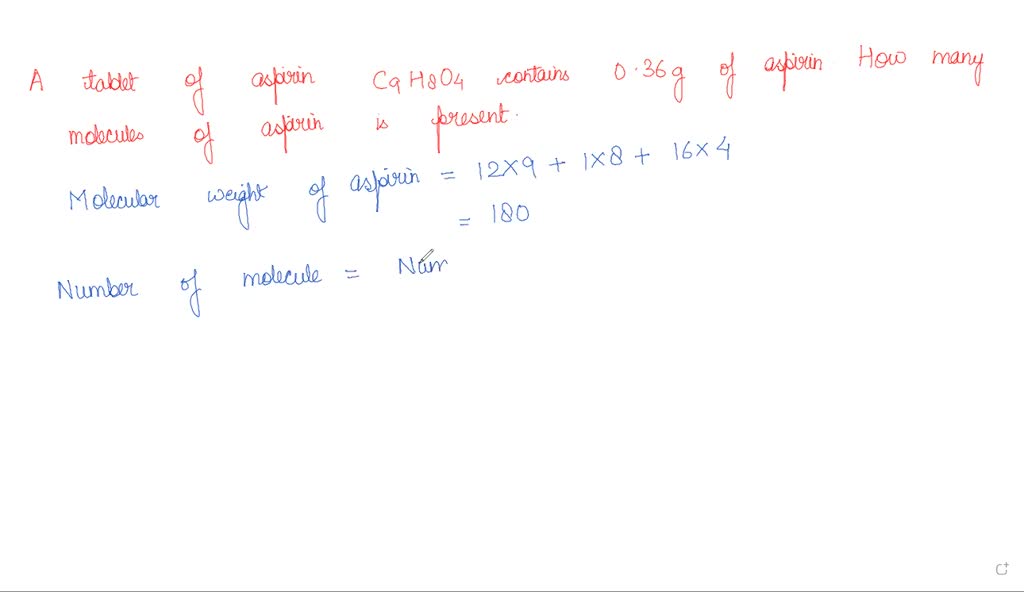 A tablet of aspirin C9H8O4 contains 0.36g of aspirin How many
molecules of aspirin is present.
Molecular weight of aspirin = 12×9 + 1×8 + 16×4
= 180
Number of molecule = Num